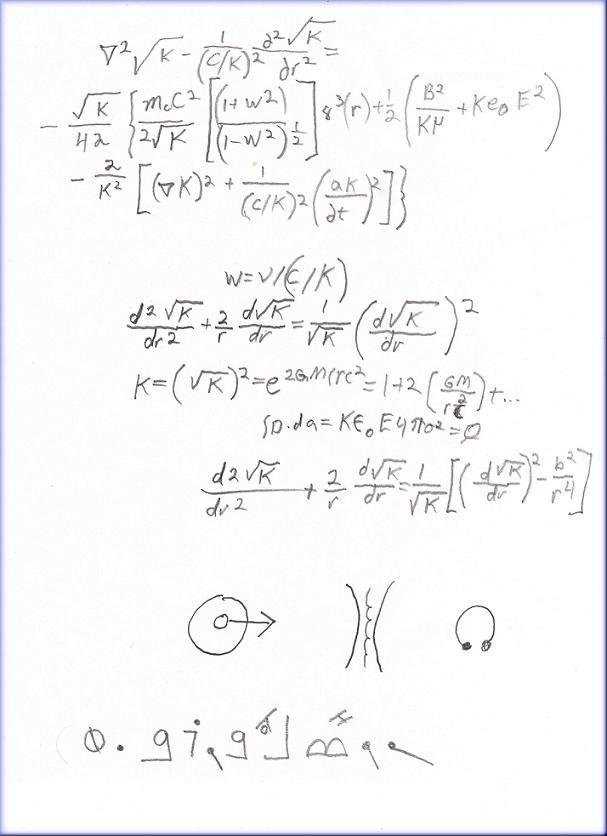 ∇²√K - 1/(C/K)² ∂²√K/∂r² =
- √K/4λ { m₀C²/2√K [(1+W²)/(1-W²)½] 8³(r) + ½ (B²/Kμ + Ke₀ E²)
- 2/K² [(∇K)² + 1/(C/K)² (∂K/∂t)²]}
W=V/(C/K)
d2√K/dr2 + 2/r d√K/dr = 1/√K (d√K/dr)²
K=(√K)²=e^2GM/rc²=1+2(GM/rc²)+...
∫D.da=Kε₀E4πσ²=Q
d2√K/dr2 + 2/r d√K/dr = 1/√K [(d√K/dr)² - b²/r⁴]